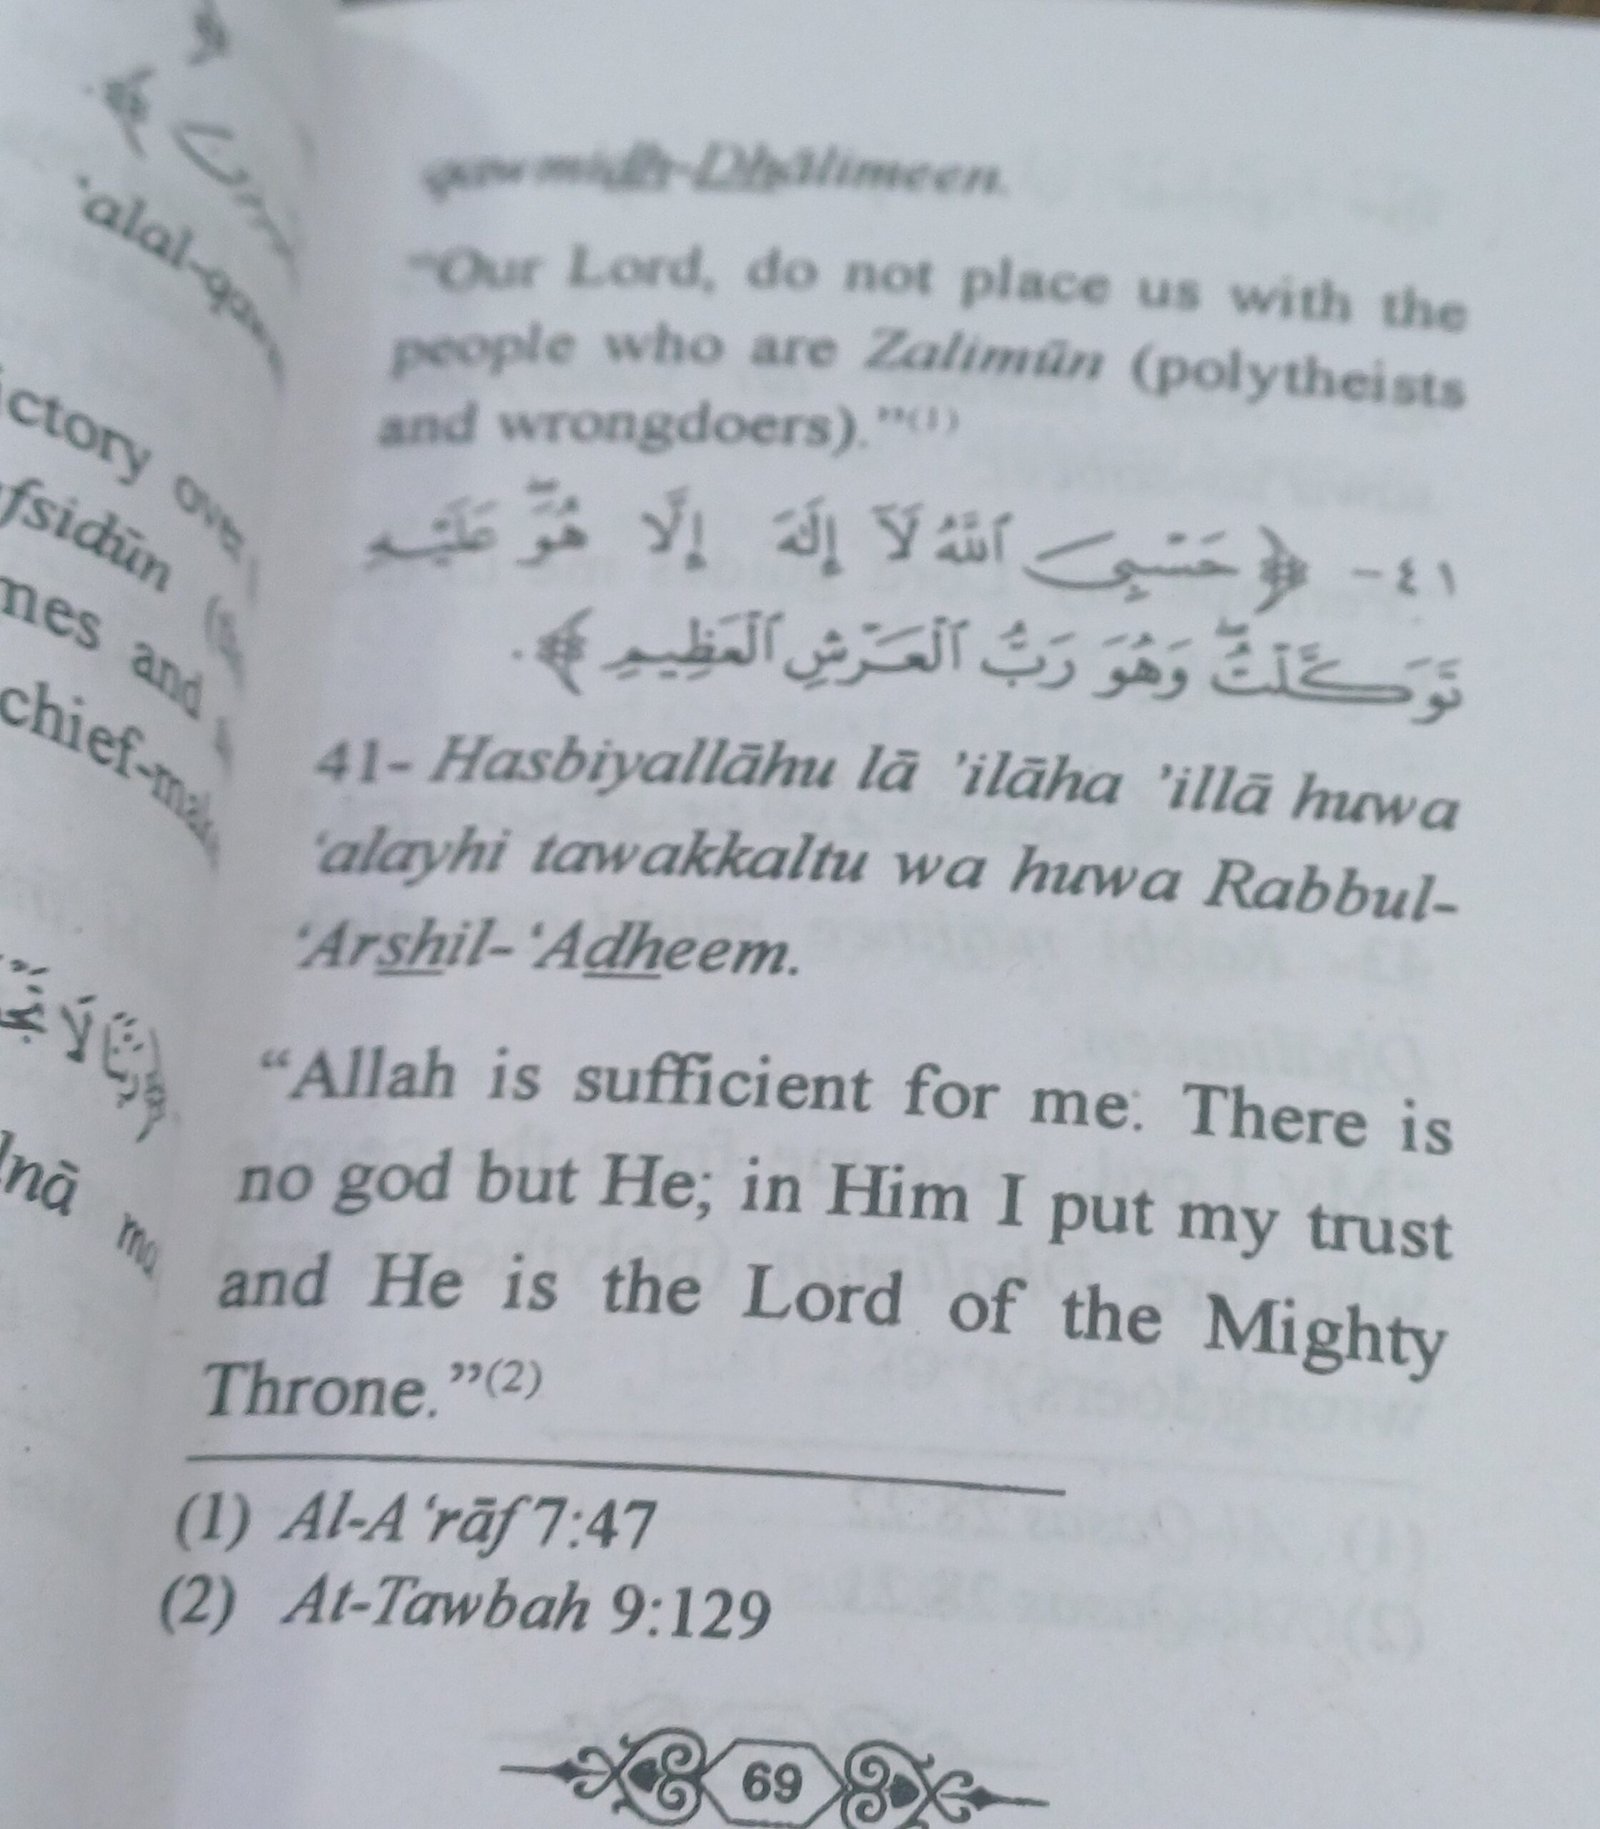 ‘alal-qaw
ictory over
fsidūn
mes and
chief-mak
lnā
qawmidh-Dhālimeen.
“Our Lord, do not place us with the
people who are Zalimūn (polytheists
and wrongdoers).”(1)
٤١- ﴿ حَسْبِيَ ٱللَّهُ لَآ إِلَٰهَ إِلَّا هُوَۖ عَلَيْهِ
تَوَكَّلْتُۖ وَهُوَ رَبُّ ٱلْعَرْشِ ٱلْعَظِيمِ ﴾.
41- Hasbiyallāhu lā ’ilāha ’illā huwa
‘alayhi tawakkaltu wa huwa Rabbul-
‘Arshil-‘Adheem.
“Allah is sufficient for me. There is
no god but He; in Him I put my trust
and He is the Lord of the Mighty
Throne.”(2)
(1) Al-A‘rāf 7:47
(2) At-Tawbah 9:129
69